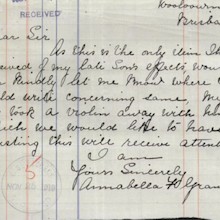 RECEIVED
Woolown
Brisba
ear Sir
As this is the only item I
eived of my late Sons effects, wou
u kindly let me know where
ld write concerning same. My
took a violin away with h
hich we would like to have
sting this will receive attent
I am
Yours Sincerely
Annabella Gra
5